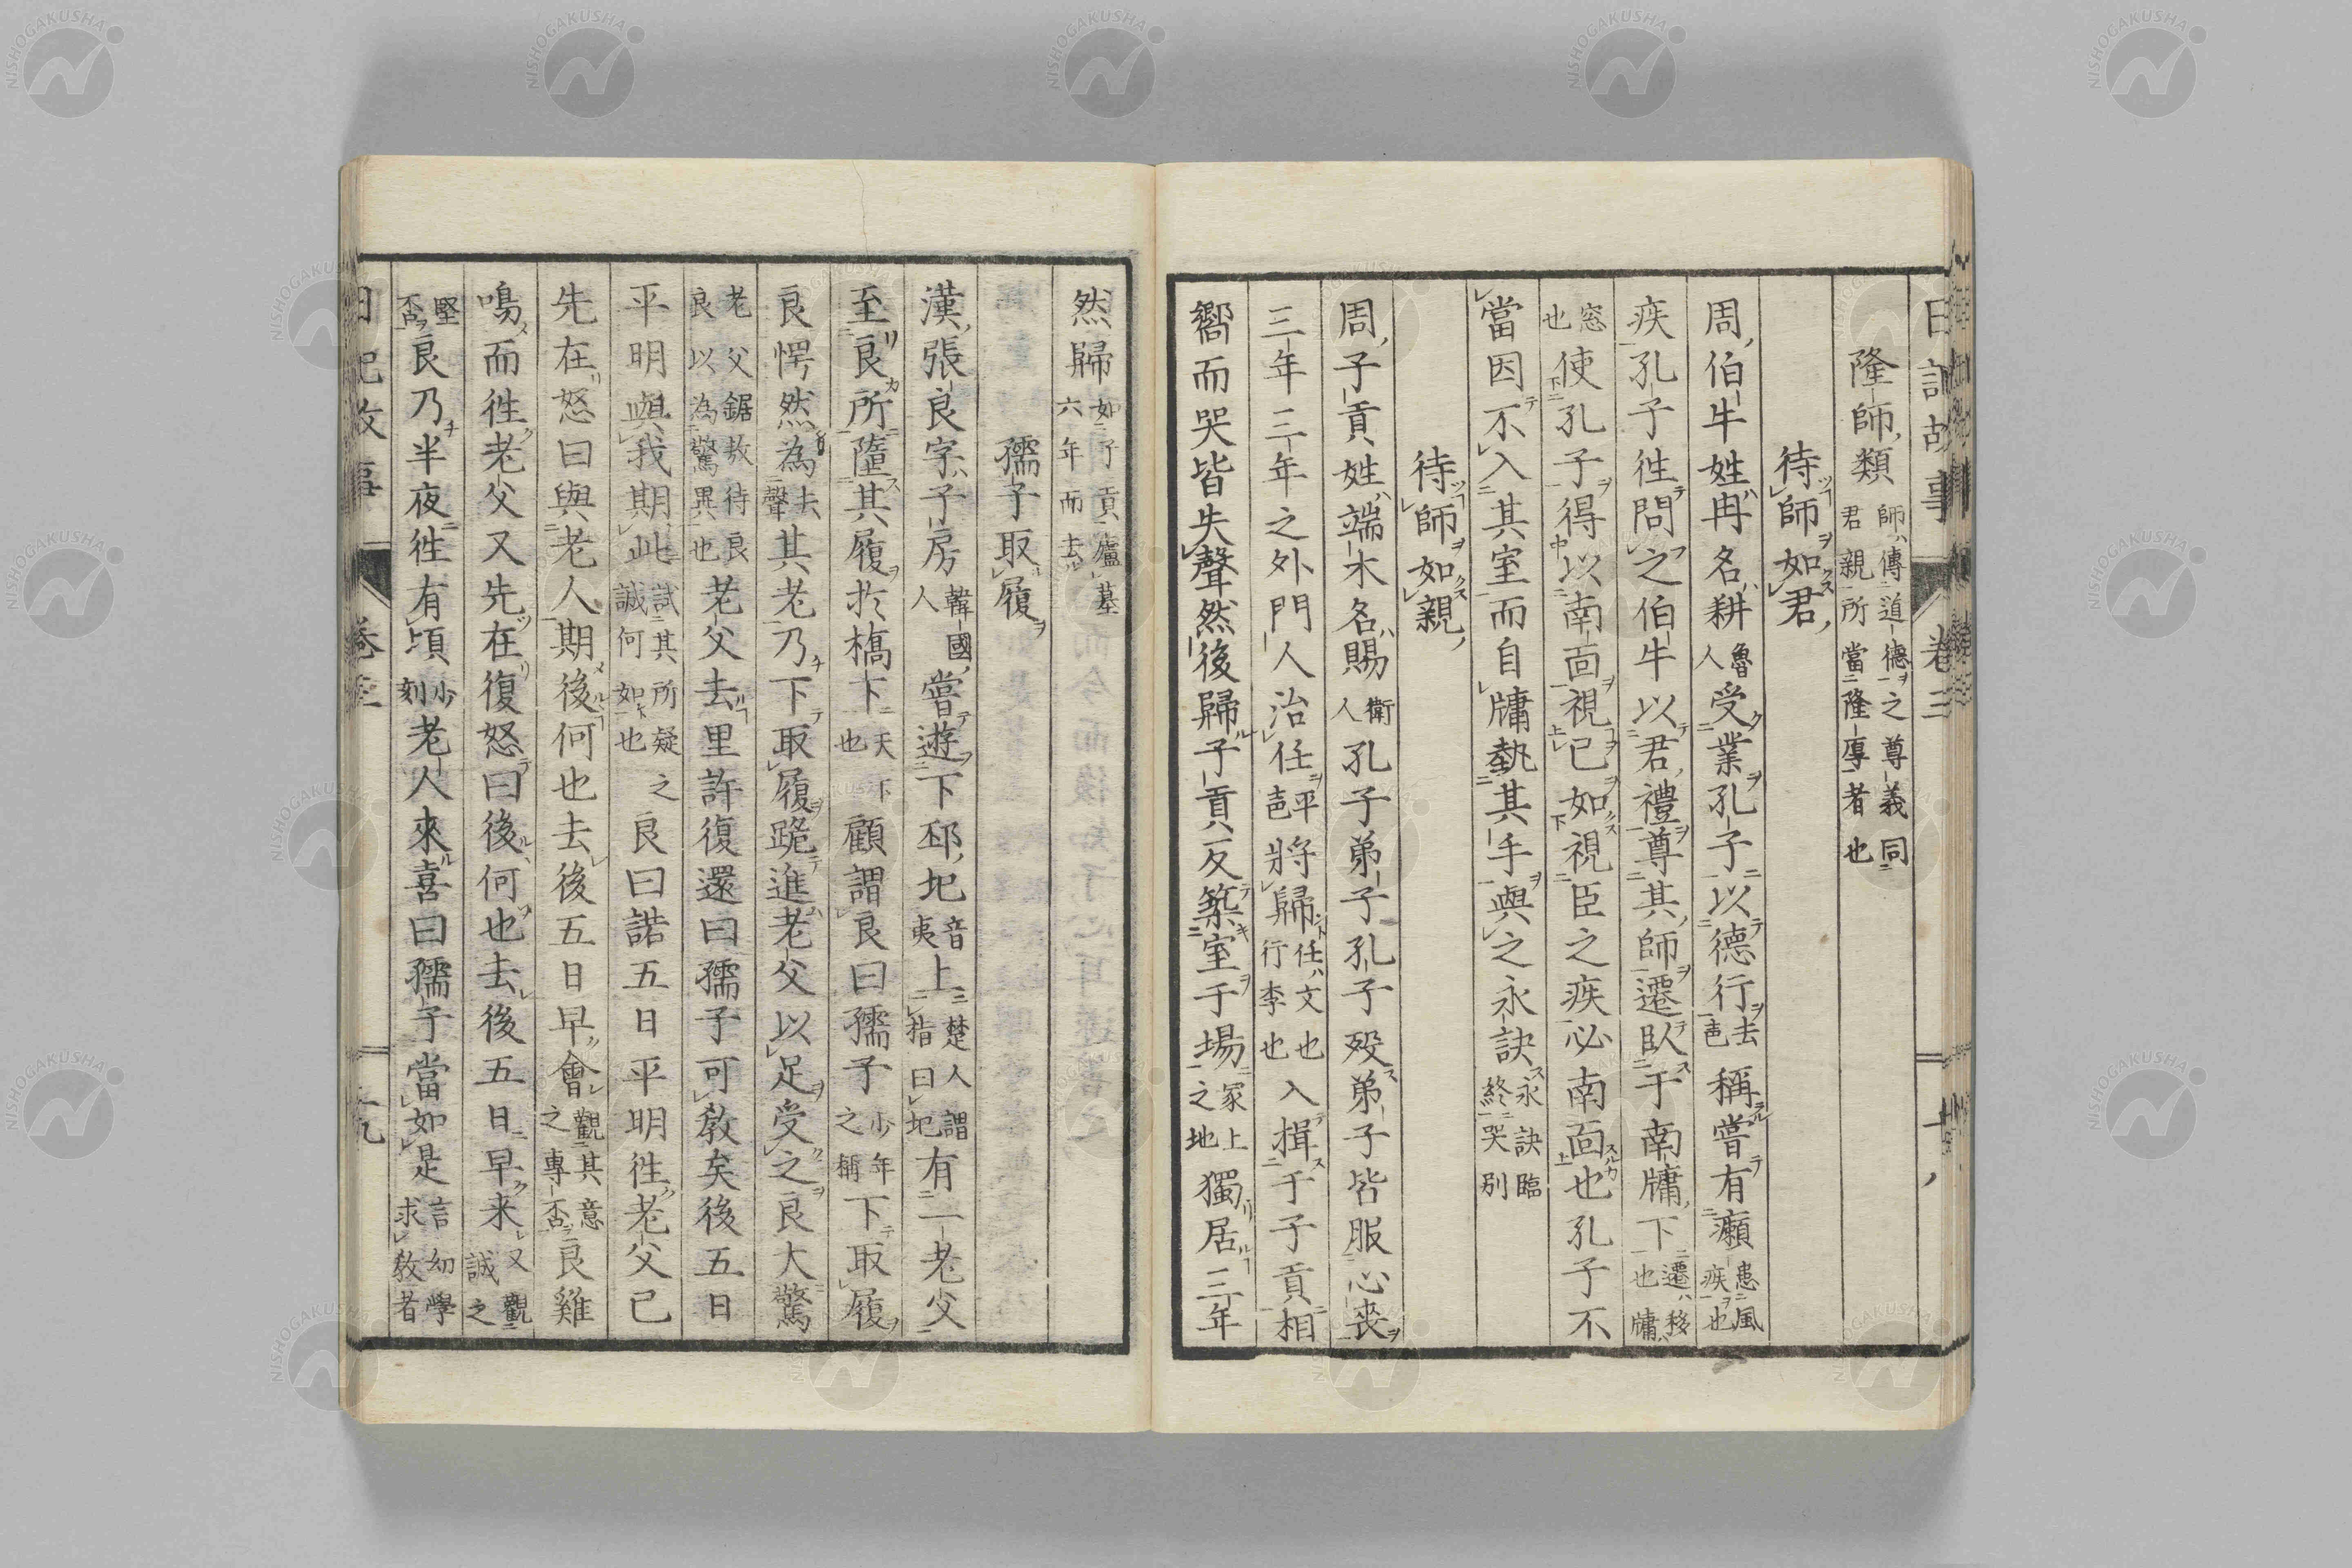 日記故事 卷三
隆師類 師傳道德之尊義同君親所當隆厚者也
待師如君
周伯牛姓冉名耕 魯人 受業孔子以德行 去声 稱嘗有癩 患風疾也
疾孔子徃問之伯牛以君禮尊其師遷臥于南牖下 遷移也牖
窓也 使孔子得以南面視已如視臣之疾必南面也孔子不
當因不入其室而自牖執其手與之永訣 永訣臨終哭別
待師如親
周子貢姓端木名賜 衛人 孔子弟子孔子殁弟子皆服心丧
三年三年之外門人治任 平声 將歸 任文也行李也 入揖于子貢相
嚮而哭皆失聲然後歸子貢反築室于場 冢上之地 獨居三年
然歸 如子貢廬墓六年而去
孺子取履
漢張良字子房 韓國人 嘗遊下邳圯 音夷 上 楚人謂指曰圯 有一老父
至良所墮其履於橋下 天下也 顧謂良曰孺子 少年之稱 下取履
良愕然為 去聲 其老乃下取履跪進老父以足受之良大驚
老父鋸敖待良以為驚異也 老父去里許復還曰孺子可敎矣後五日
平明與我期此 試其所疑誠何如也 之良曰諾五日平明徃老父已
先在怒曰與老人期後何也去後五日早會 觀其意之專否 良雞
鳴而徃老父又先在復怒曰後何也去後五日早来 又觀誠之
堅否 良乃半夜徃有頃 少刻 老人來喜曰孺子當如是 言幼學求敎者
日記故事 卷三